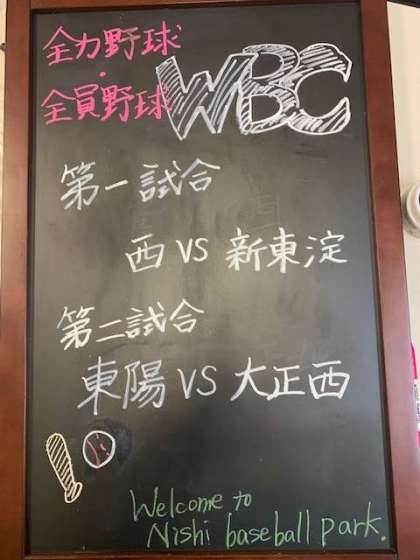 全力野球
・
全員野球 WBC
第一試合
西 VS 新東淀
第二試合
東陽 VS 大正西
Welcome to
Nishi baseball park.